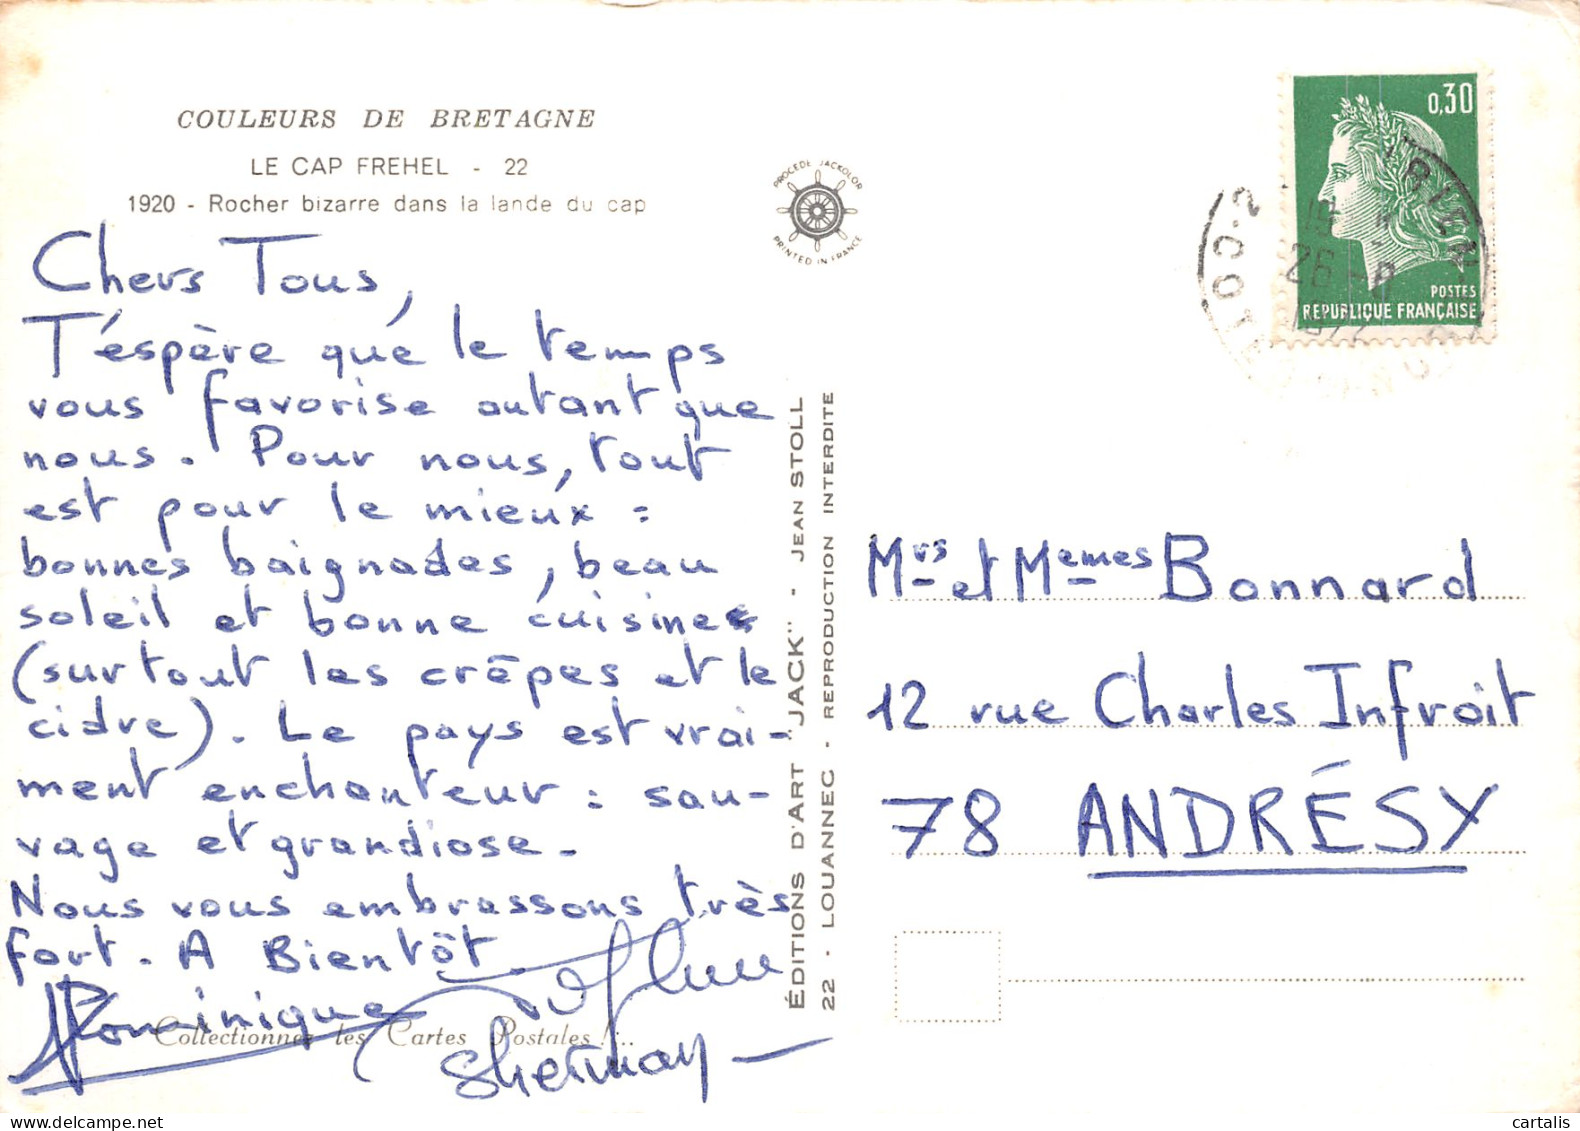 COULEURS DE BRETAGNE
LE CAP FREHEL - 22
1920 - Rocher bizarre dans la lande du cap
Chers Tous,
J'éspère qué le temps
vous favorise autant que
nous. Pour nous, tout
est pour le mieux :
bonnes baignades, beau
soleil et bonne cuisine
(surtout les crêpes et le
cidre). Le pays est vrai-
ment enchanteur : sau-
vage et grandiose.
Nous vous embrassons très
fort. A Bientôt
Dominique
Collectionnez les Cartes Postales !...
PROCEDE JACKOLOR
PRINTED IN FRANCE
ÉDITIONS D'ART "JACK" - JEAN STOLL
22 - LOUANNEC - REPRODUCTION INTERDITE
0,30
POSTES
REPUBLIQUE FRANÇAISE
Mrs et Memes Bonnard
12 rue Charles Infroit
78 ANDRÉSY
cartalis